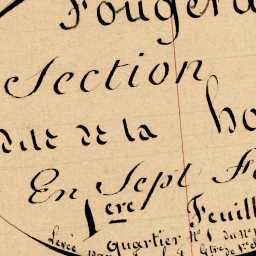 Fougera
Section
dite de la ho
En Sept Fe
1ère Feuill
Levée Quartier Nº 1 du Nº